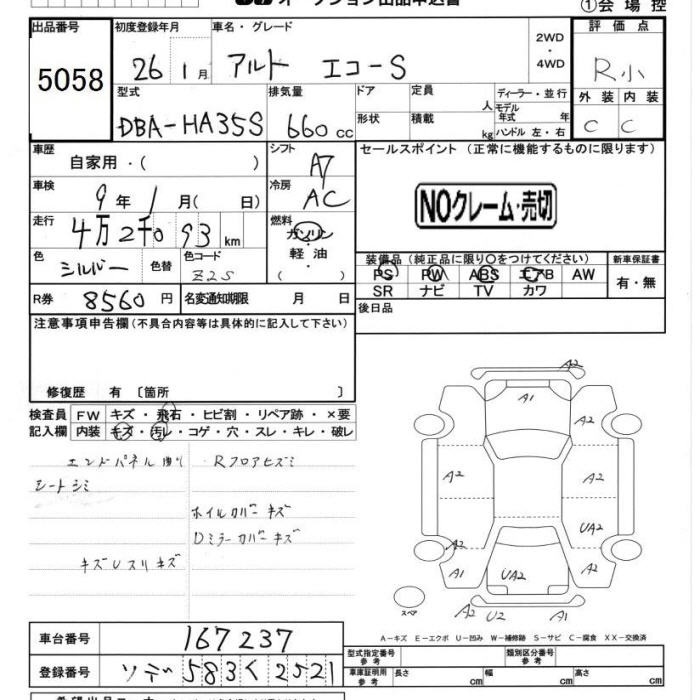 オークション出品申込書
①会場控
出品番号 初度登録年月 車名・グレード 2WD・4WD 評価点
5058 26 1月 アルト エコーS R小
型式 排気量 ドア 定員 人 ディーラー・並行 外装 内装
DBA-HA35S 660cc 形状 積載 kg モデル年式 年 ハンドル 左・右 C C
車歴 自家用・( ) シフト A7 セールスポイント(正常に機能するものに限ります)
車検 9年1月(日) 冷房 AC NOクレーム・売切
走行 4万2千093km 燃料 ガソリン
軽油
( )
色 シルバー 色替 色コード Z2S 装備品(純正品に限り○をつけてください) 新車保証書
PS PW ABS エアB AW 有・無
SR ナビ TV カワ
R券 8560円 名変通知期限 月 日 後日品
注意事項申告欄(不具合内容等は具体的に記入して下さい)
修復歴 有 〔箇所 〕
検査員 FW キズ・飛石・ヒビ割・リペア跡・×要
記入欄 内装 キズ・汚レ・コゲ・穴・スレ・キレ・破レ
エンドパネル Rフロアヒズミ
シートシミ
ホイルカバーキズ
Dミラーカバーキズ
キズUスリキズ
A2
A1
A2
A2 A2
UA2
A2 A1 UA2 A2
スペア A2 U2 A1
A-キズ E-エクボ U-凹み W-補修跡 S-サビ C-腐食 XX-交換済
車台番号 167237
型式指定番号 参考 類別区分番号 参考
登録番号 ソデ583く2521
車庫証明用 参考 長さ cm 幅 cm 高さ cm